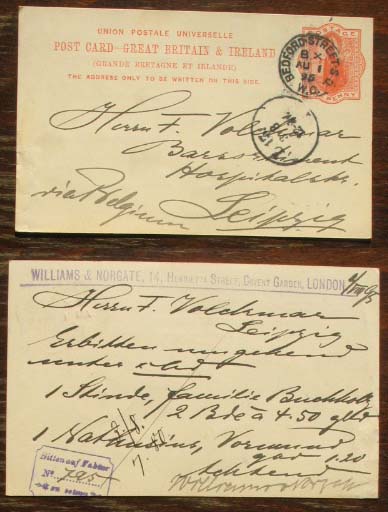 UNION POSTALE UNIVERSELLE
POST CARD - GREAT BRITAIN & IRELAND
(GRANDE BRETAGNE ET IRLANDE)
THE ADDRESS ONLY TO BE WRITTEN ON THIS SIDE.
BEDFORD STREET S.O.
W.C.
AU 1
95
POSTAGE
PENNY
Herrn F. Volckmar
Hospitalstr.
via Belgium Leipzig
WILLIAMS & NORGATE, 14, HENRIETTA STREET, COVENT GARDEN, LONDON
Herrn F. Volckmar
Leipzig
Erbitten umgehend
unter
1 Stinde, familie Buchholz
2 Bde à 4.50 gbd
1 Nathusius, Vormund
gbd 1.20
No. 795
7.80
Williams & Norgate